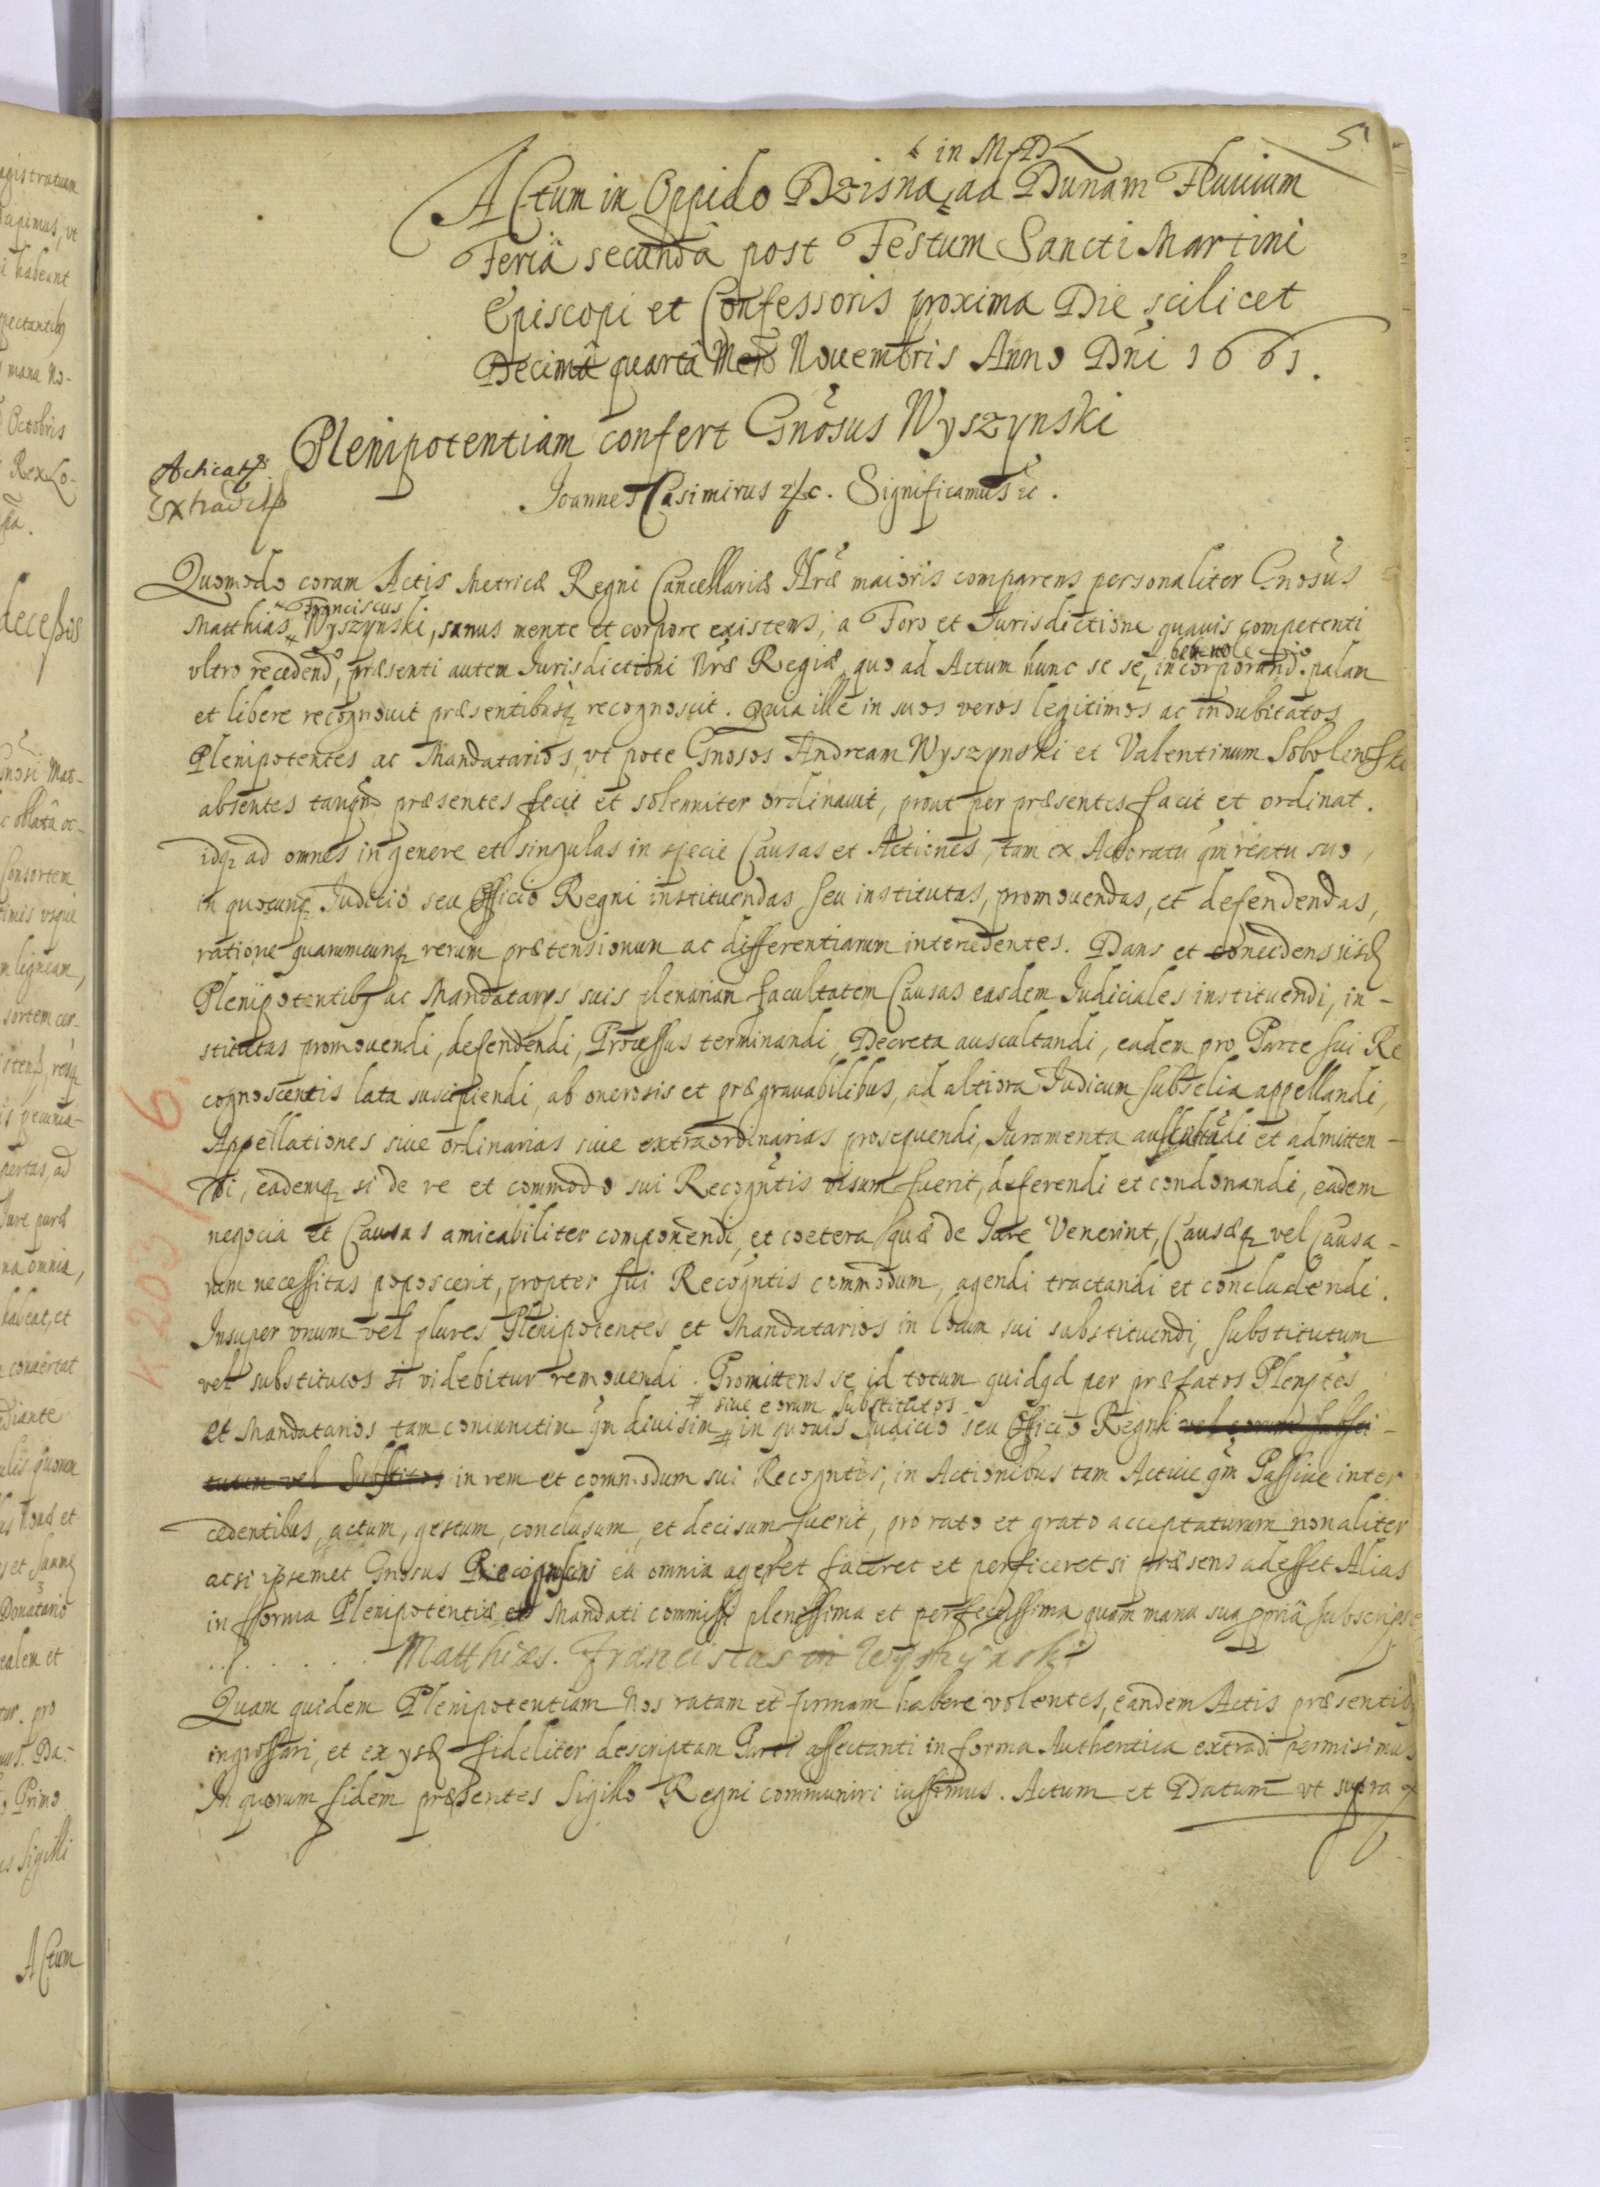 5
in M D
Actum in Oppido Dzisna ad Dunam Fluuium
Feriâ secundâ post Festum Sancti Martini
Episcopi et Confessoris proxima Die scilicet
Decimâ quartâ Novembris Anno Dñi 1661.
Plenipotentiam confert Gnosus Wyszynski
Acticat
Extradit
Joannes Casimirus &c. Significamus &c.
Quomodo coram Actis Metricæ Regni Cancellariæ Nræ maioris comparens personaliter Gnosus
Franciscus
Matthias Wyszynski, sanus mente et corpore existens, a Foro et Jurisdictione quauis competenti
beneuole
vltro recedendo, præsenti autem Jurisdictioni Nræ Regiæ, quo ad Actum hunc se se incorporando. palam
et libere recognouit præsentibusq recognoscit. Quia ille in suos veros legitimos ac indubitatos
Plenipotentes ac Mandatarios, vt pote Gnosos Andream Wyszynski et Valentinum Sobolewski
absentes tanqm præsentes fecit et solenniter ordinauit, prout per præsentes facit et ordinat.
idq ad omnes in genere et singulas in specie Causas et Actiones, tam ex Actoratu qm reatu suo,
in quocunq Juditio seu Officio Regni instituendas seu institutas, promouendas, et defendendas,
ratione quarumcunq rerum prætensionum ac differentiarum intercedentes. Dans et concedens iisd
Plenipotentib ac Mandatarijs suis plenariam facultatem Causas easdem Judiciales instituendi, in-
stitutas promouendi, defendendi, Processus terminandi, Decreta auscultandi, eadem pro Parte sui Re
cognoscentis lata suscipiendi, ab onerosis et prægrauabilibus, ad altiora Judicum subselia appellandi,
Appellationes siue ordinarias siue extraordinarias prosequendi, Juramenta auscultādi et admitten-
di, eademq si de re et commodo sui Recogntis visum fuerit, deferendi et condonandi, eadem
negocia et Causas amicabiliter componendi, et coetera quæ de Jure Venerint, Causæq vel Causa-
rum necessitas poposcerit, propter sui Recogntis commodum, agendi tractandi et concludendi.
Insuper vnum vel plures Plenipotentes et Mandatarios in locum sui substituendi, substitutum
vel substitutos si videbitur remouendi. Promittens se id totum quidqd per præfatos Plenptes
siue eorum substitutos
et Mandatarios tam coniunctim qm diuisim in quouis Judicio seu Officio Regni vel eorum substi-
tutum vel substitos in rem et commodum sui Recogntis, in Actionibus tam Actiue qm Passiue inter
cedentibus, actum, gestum, conclusum, et decisum fuerit, pro rato et grato acceptaturum non aliter
ac si ipsemet Gnosus Recognoscens ea omnia ageret faceret et perficeret si præsens adesset Alias
in forma Plenipotentiæ et Mandati commissi plenissima et perfectissima quam manu sua ppria subscripsit
Matthias. Franciscus Wyszynski
Quam quidem Plenipotentiam Nos ratam et firmam habere volentes, eandem Actis præsentib
ingrossari, et ex ysd fideliter descriptam Parti affectanti in forma Authentica extradi permisimus
In quorum fidem præsentes Sigillo Regni communiri iussimus. Actum et Datum vt supra